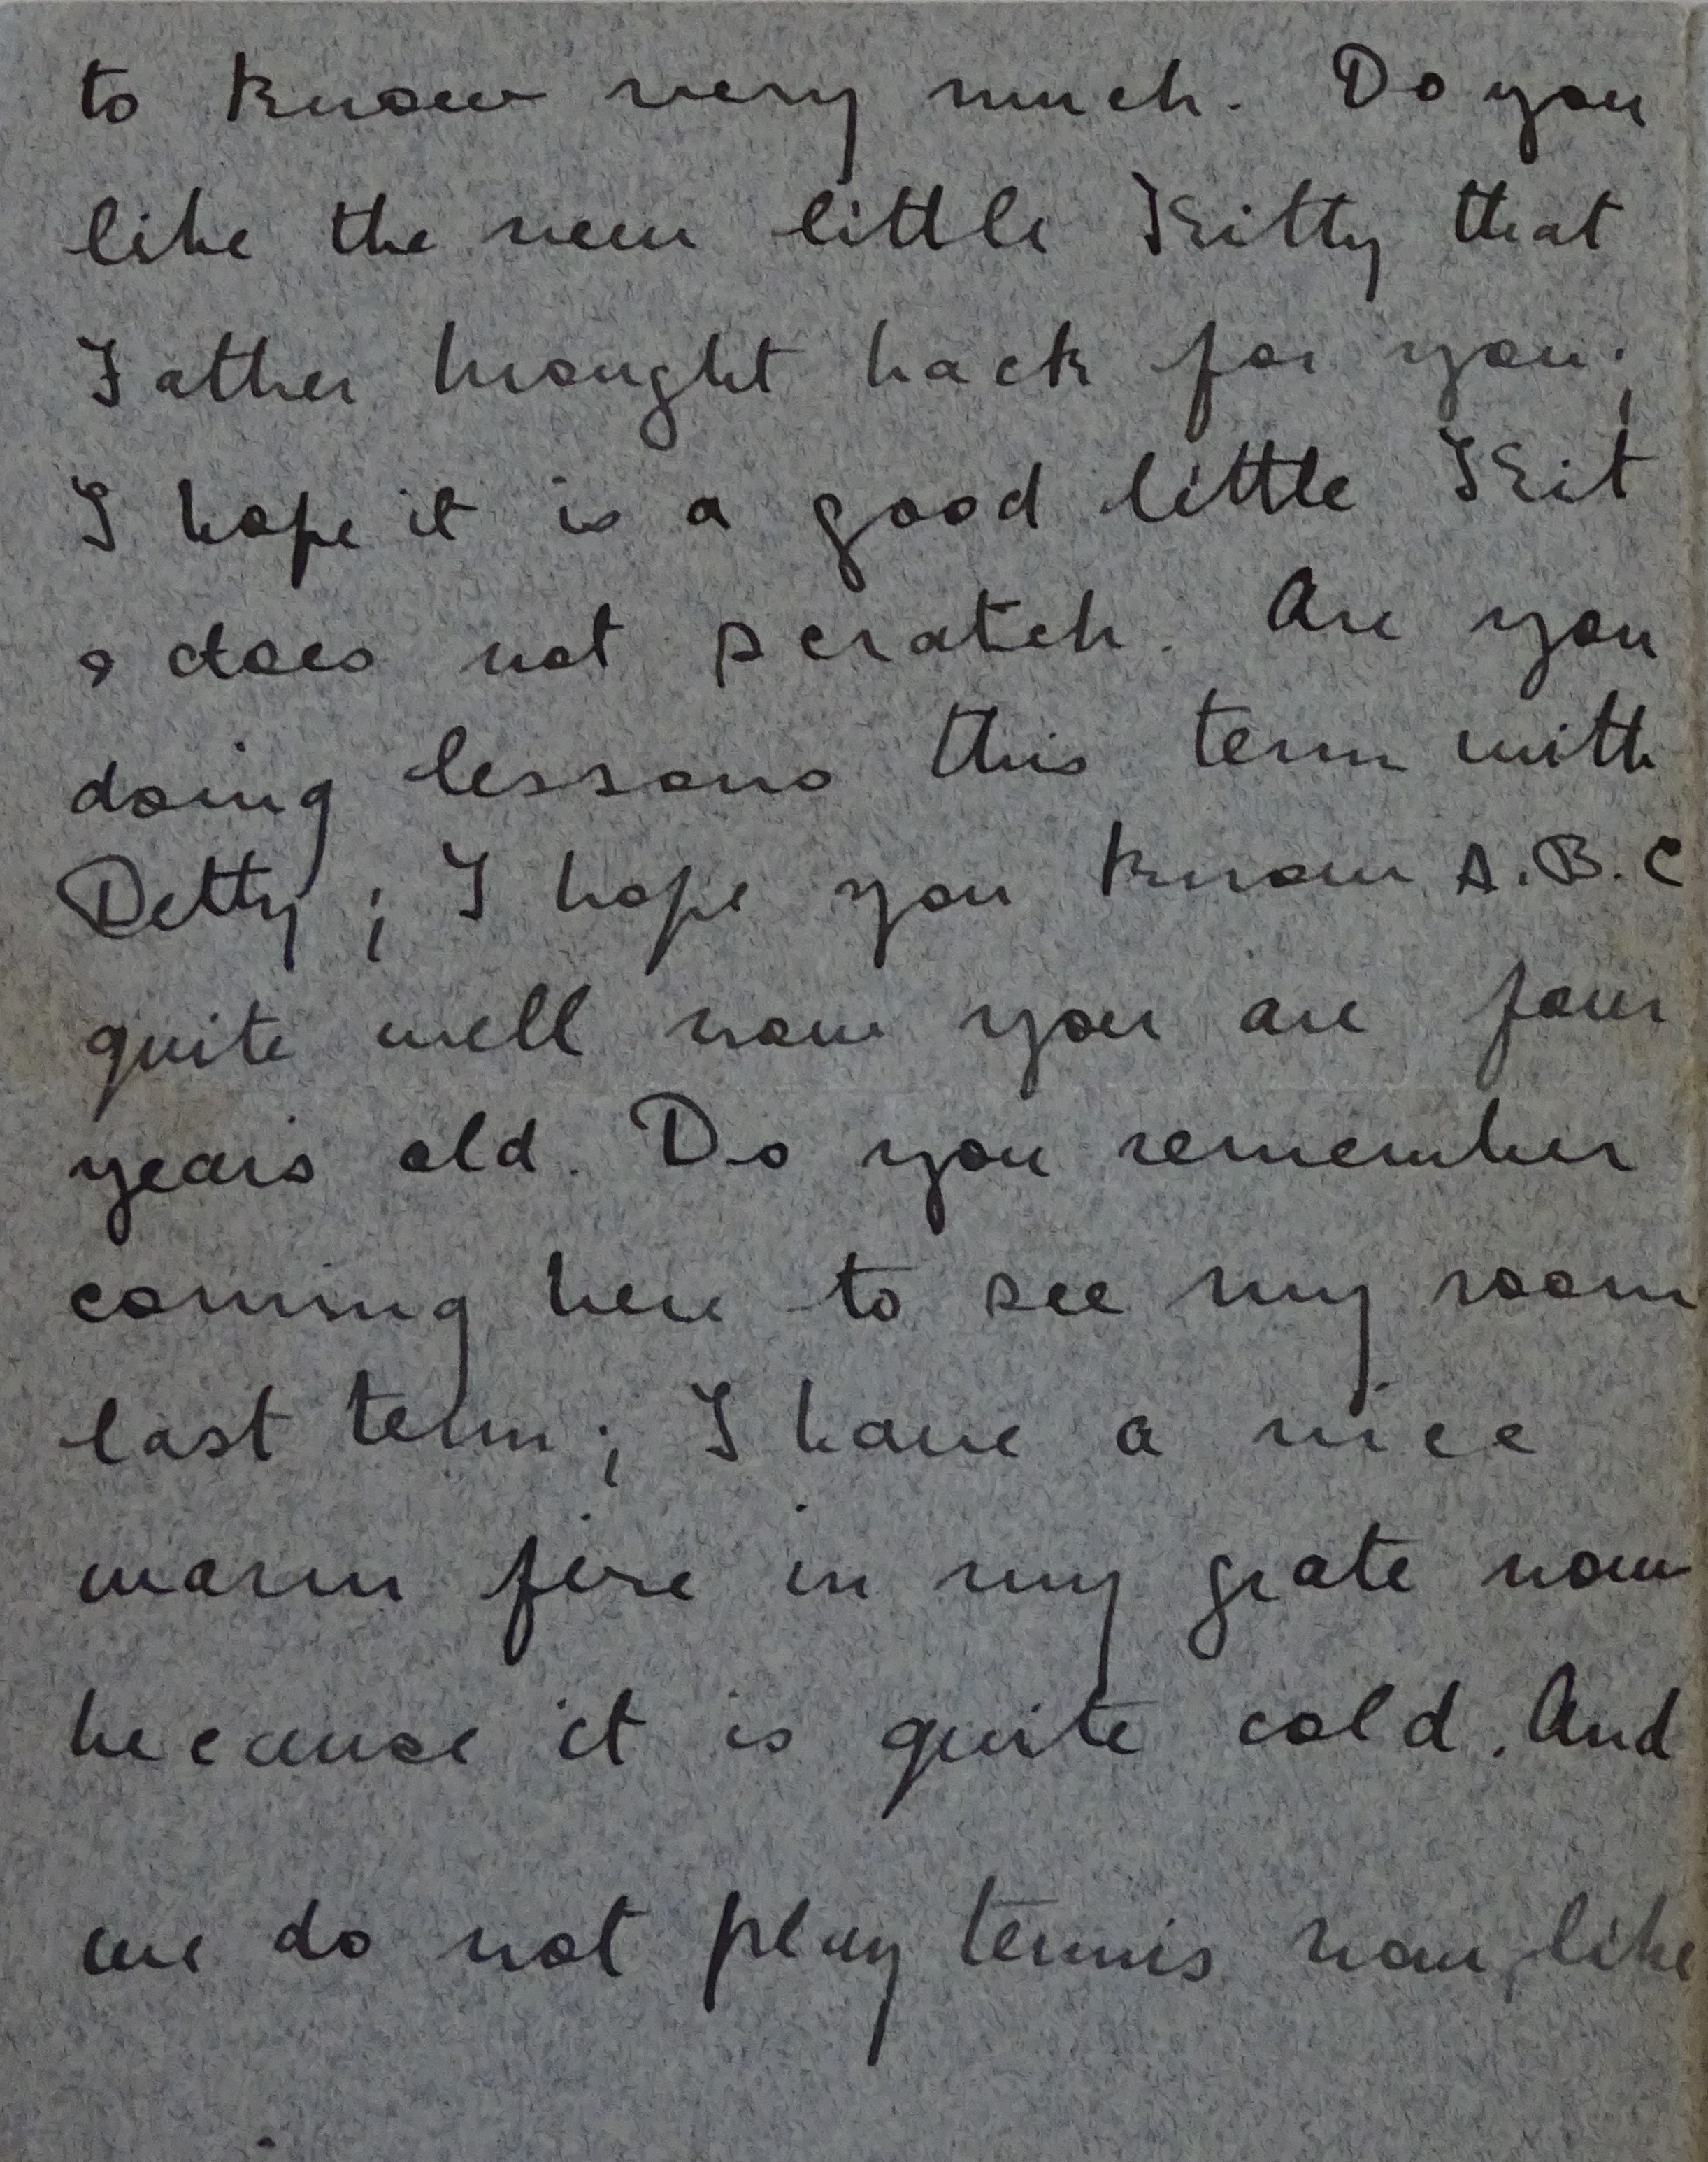 to know very much. Do you
like the new little Kitty that
Father brought back for you;
I hope it is a good little Kit
& does not scratch. Are you
doing lessons this term with
Detty; I hope you know A.B.C
quite well now you are four
years old. Do you remember
coming here to see my room
last term; I have a nice
warm fire in my grate now
because it is quite cold. And
we do not play tennis now, like